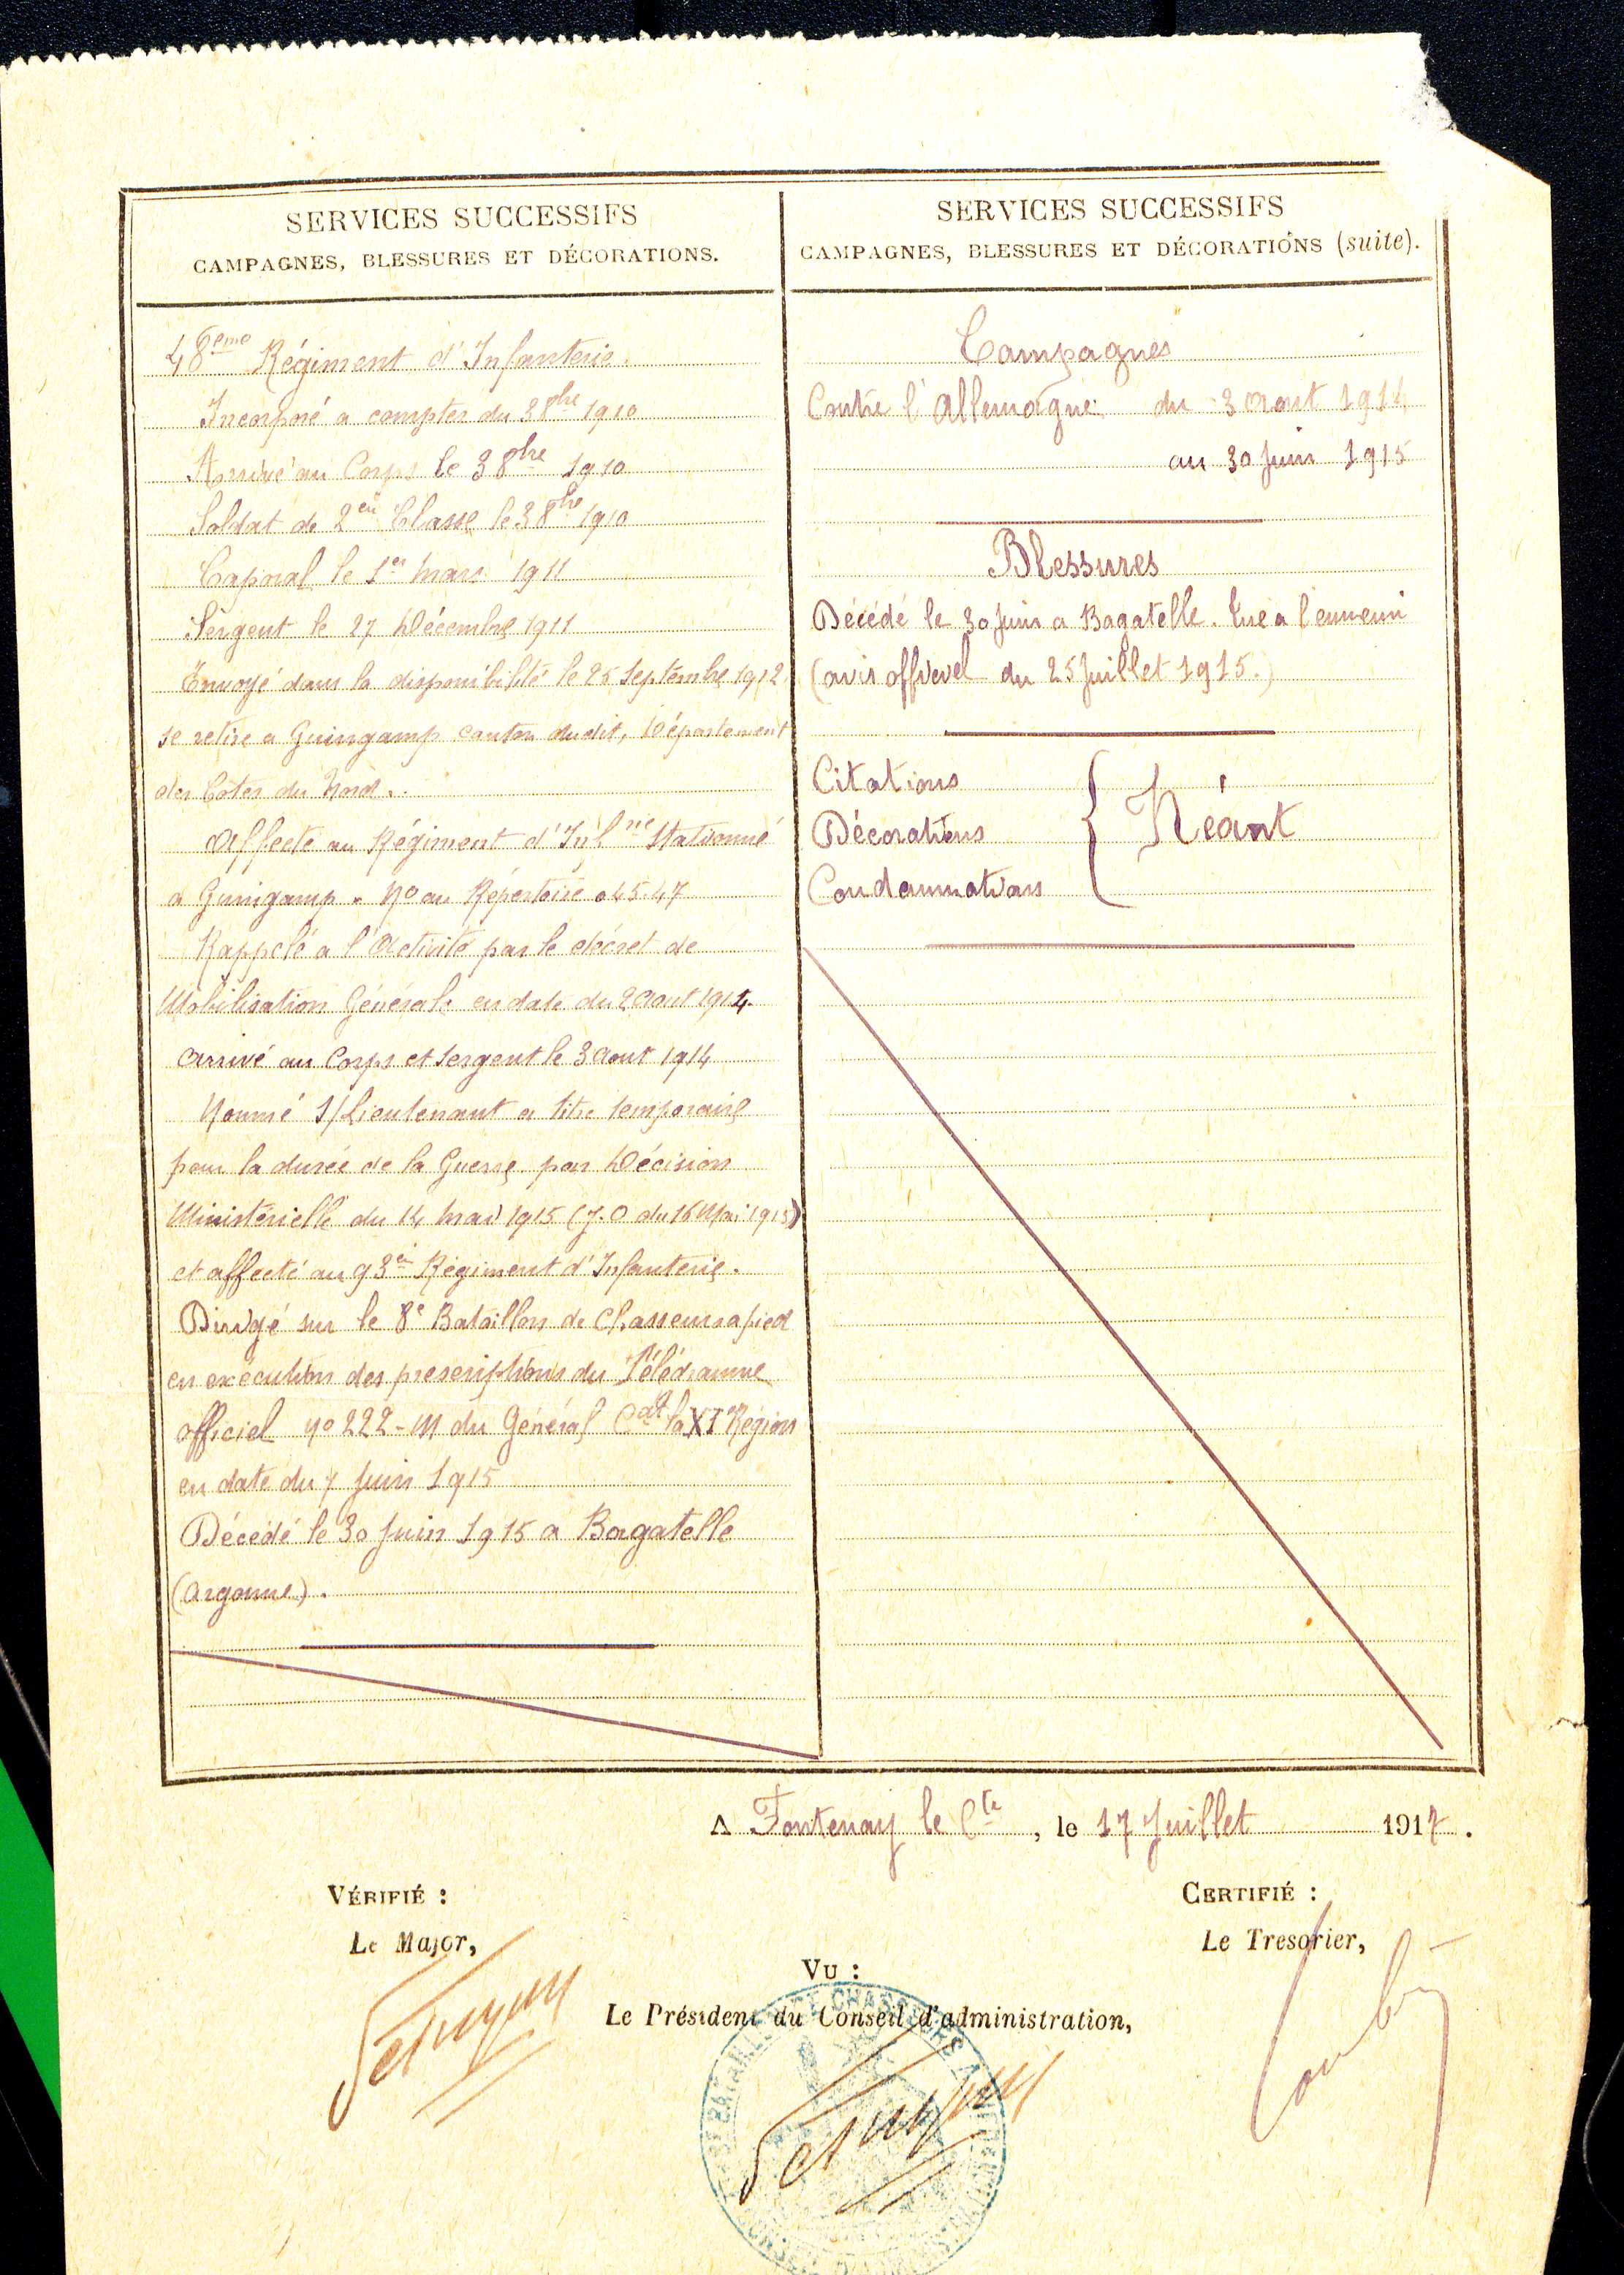 SERVICES SUCCESSIFS
CAMPAGNES, BLESSURES ET DÉCORATIONS.
48ème Régiment d'Infanterie.
Incorporé a compter du 3 8bre 1910
Arrivé au Corps le 3 8bre 1910
Soldat de 2eu Classe le 3 8bre 1910
Caporal le 1er Mars 1911
Sergent le 27 Décembre 1911
Envoyé dans la disponibilité le 25 Septembre 1912
se retire a Guingamp canton dudit, Département
des Cotes du Nord..
Affecté au Régiment d'Infrie Stationné
a Guingamp. No au Répertoire 045.47
Rappelé a l'Activité par le décret de
Mobilisation Générale en date du 2 Aout 1914
Arrivé au Corps et Sergent le 3 Aout 1914
Nommé S/Lieutenant a titre temporaire
pour la durée de la Guerre par Décision
Ministérielle du 14 Mai 1915 (J.O du 16 Mai 1915)
et affecté au 93e Régiment d'Infanterie.
Dirigé sur le 8e Bataillon de Chasseurs a pied
en exécution des prescriptions du Télégramme
officiel no 222-M du Général Cdt la XIe Région
en date du 7 Juin 1915
Décédé le 30 Juin 1915 a Bagatelle
(Argonne).
SERVICES SUCCESSIFS
CAMPAGNES, BLESSURES ET DÉCORATIONS (suite).
Campagnes
Contre l'Allemagne: du 3 Aout 1914
au 30 Juin 1915
Blessures
Décédé le 30 Juin a Bagatelle. Tué a l'ennemi
(avis officiel du 25 Juillet 1915.)
Citations
Décorations { Néant
Condamnations
A Fontenay le Cte, le 17 Juillet 1917.
VÉRIFIÉ :
Le Major,
CERTIFIÉ :
Le Tresorier,
VU :
Le Président du Conseil d'administration,